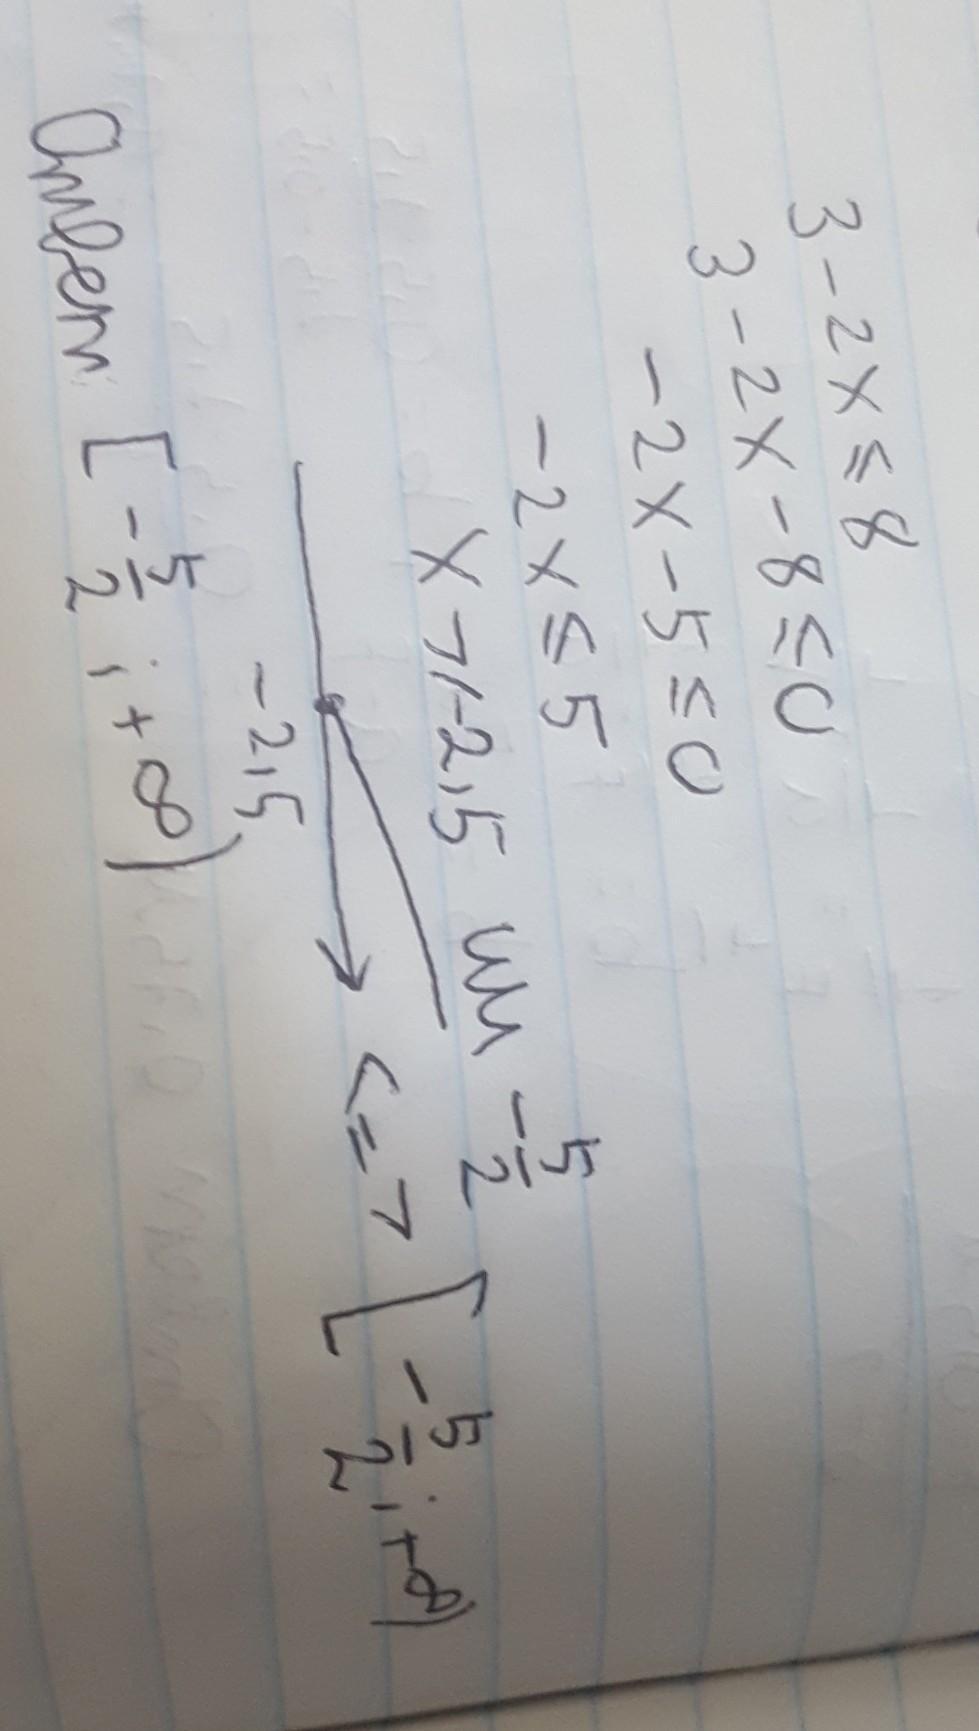 3 - 2x ≤ 8
3 - 2x - 8 ≤ 0
-2x - 5 ≤ 0
-2x ≤ 5
x ⩾ -2,5 или -5/2
-2,5
<=> [-5/2; +∞)
Ответ: [-5/2; +∞)